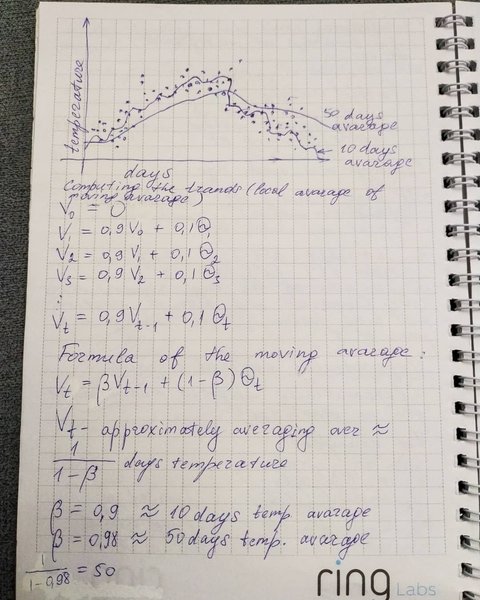 temperature
50 days
avarage
10 days
avarage
days
Computing the trands (local avarage of
moving avarage)
V₀ = 0
V₁ = 0,9V₀ + 0,1Θ₁
V₂ = 0,9V₁ + 0,1Θ₂
V₃ = 0,9V₂ + 0,1Θ₃
⋮
Vₜ = 0,9Vₜ₋₁ + 0,1Θₜ
Formula of the moving avarage:
Vₜ = βVₜ₋₁ + (1-β)Θₜ
Vₜ - approximately averaging over ≈
1/(1-β) days temperature
β = 0,9 ≈ 10 days temp. avarage
β = 0,98 ≈ 50 days temp. avarage
1/(1-0,98) = 50
ring Labs